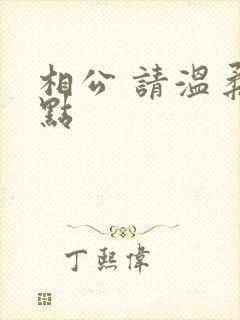 相公 請溫柔
點
丁熙偉